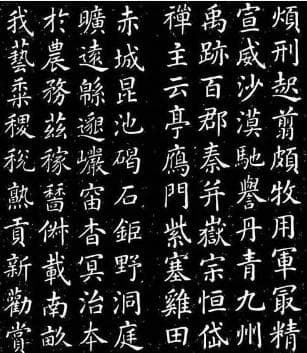 煩刑起翦頗牧用軍最精
宣威沙漠馳譽丹青九州
禹跡百郡秦并嶽宗恒岱
禪主云亭鴈門紫塞雞田
赤城昆池碣石鉅野洞庭
曠遠緜邈巖峀杳冥治本
於農務茲稼穡俶載南畝
我藝黍稷稅熟貢新勸賞